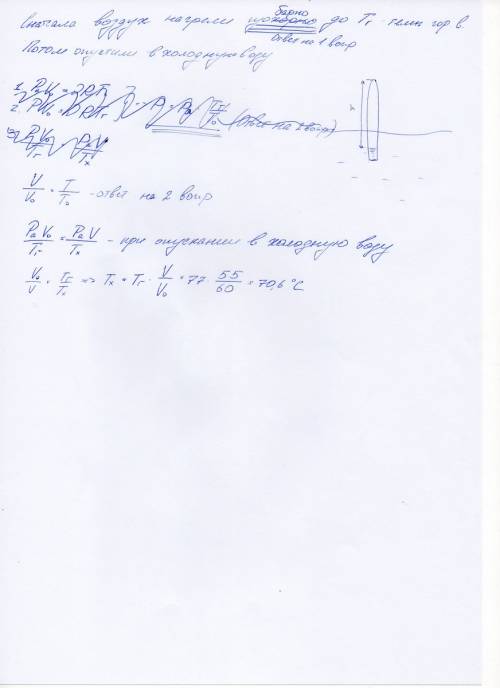 Сначала воздух нагрели изохорно барно до Tг - темп гор в.
Ответ на 1 вопр
Потом опустили в холодную воду
1. PaV0 = νRT0
2. PV0 = νRTг
P = Pa Tг/T0 (Ответ на 2 вопр)
V/V0 = T/T0 - ответ на 2 вопр
PaV0/Tг = PaV/Tх - при опускании в холодную воду
V0/V = Tг/Tх => Tх = Tг · V/V0 = 77 · 55/60 = 70,6 °C
h